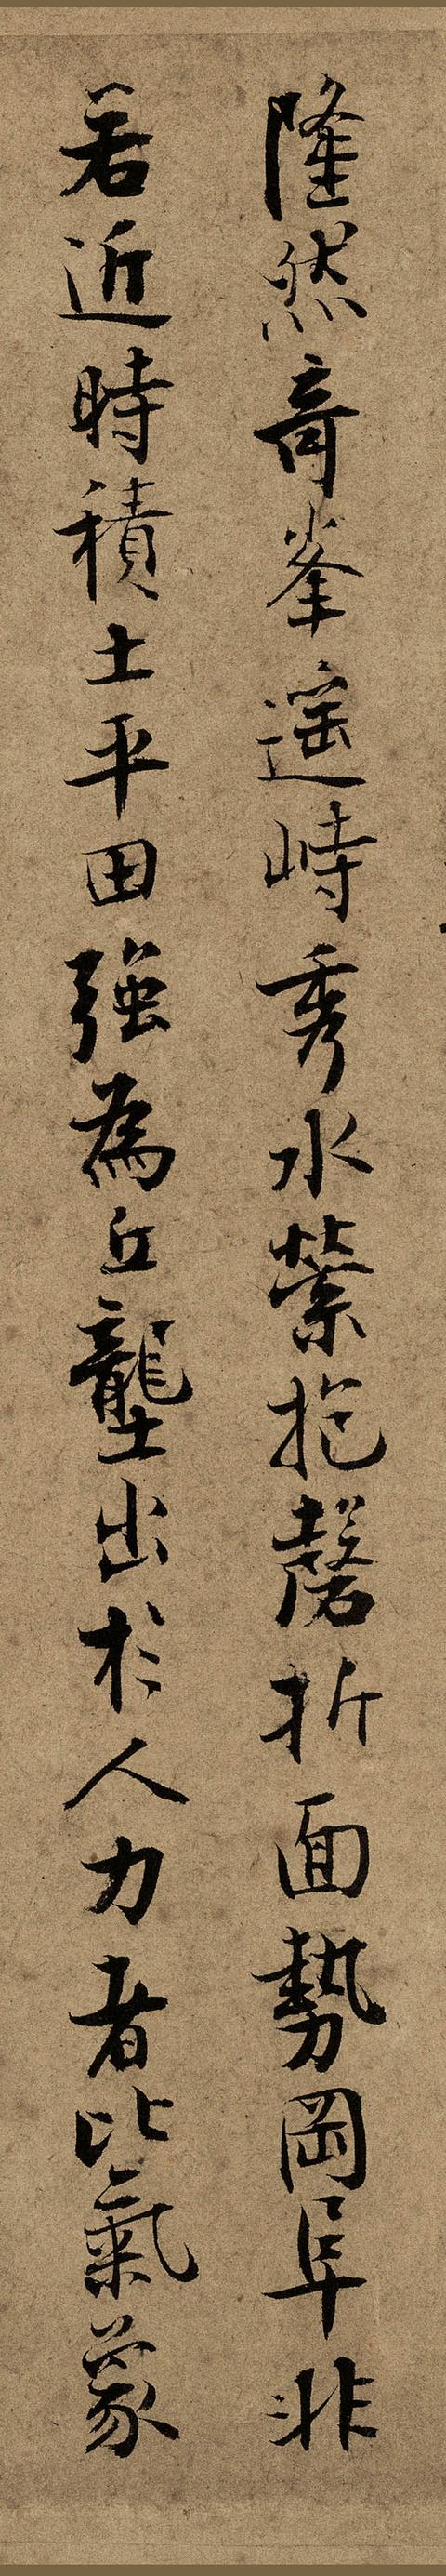 隆然奇峯遥峙秀水縈抱磬折面勢岡阜非
若近時積土平田強為丘壟出於人力者比氣象